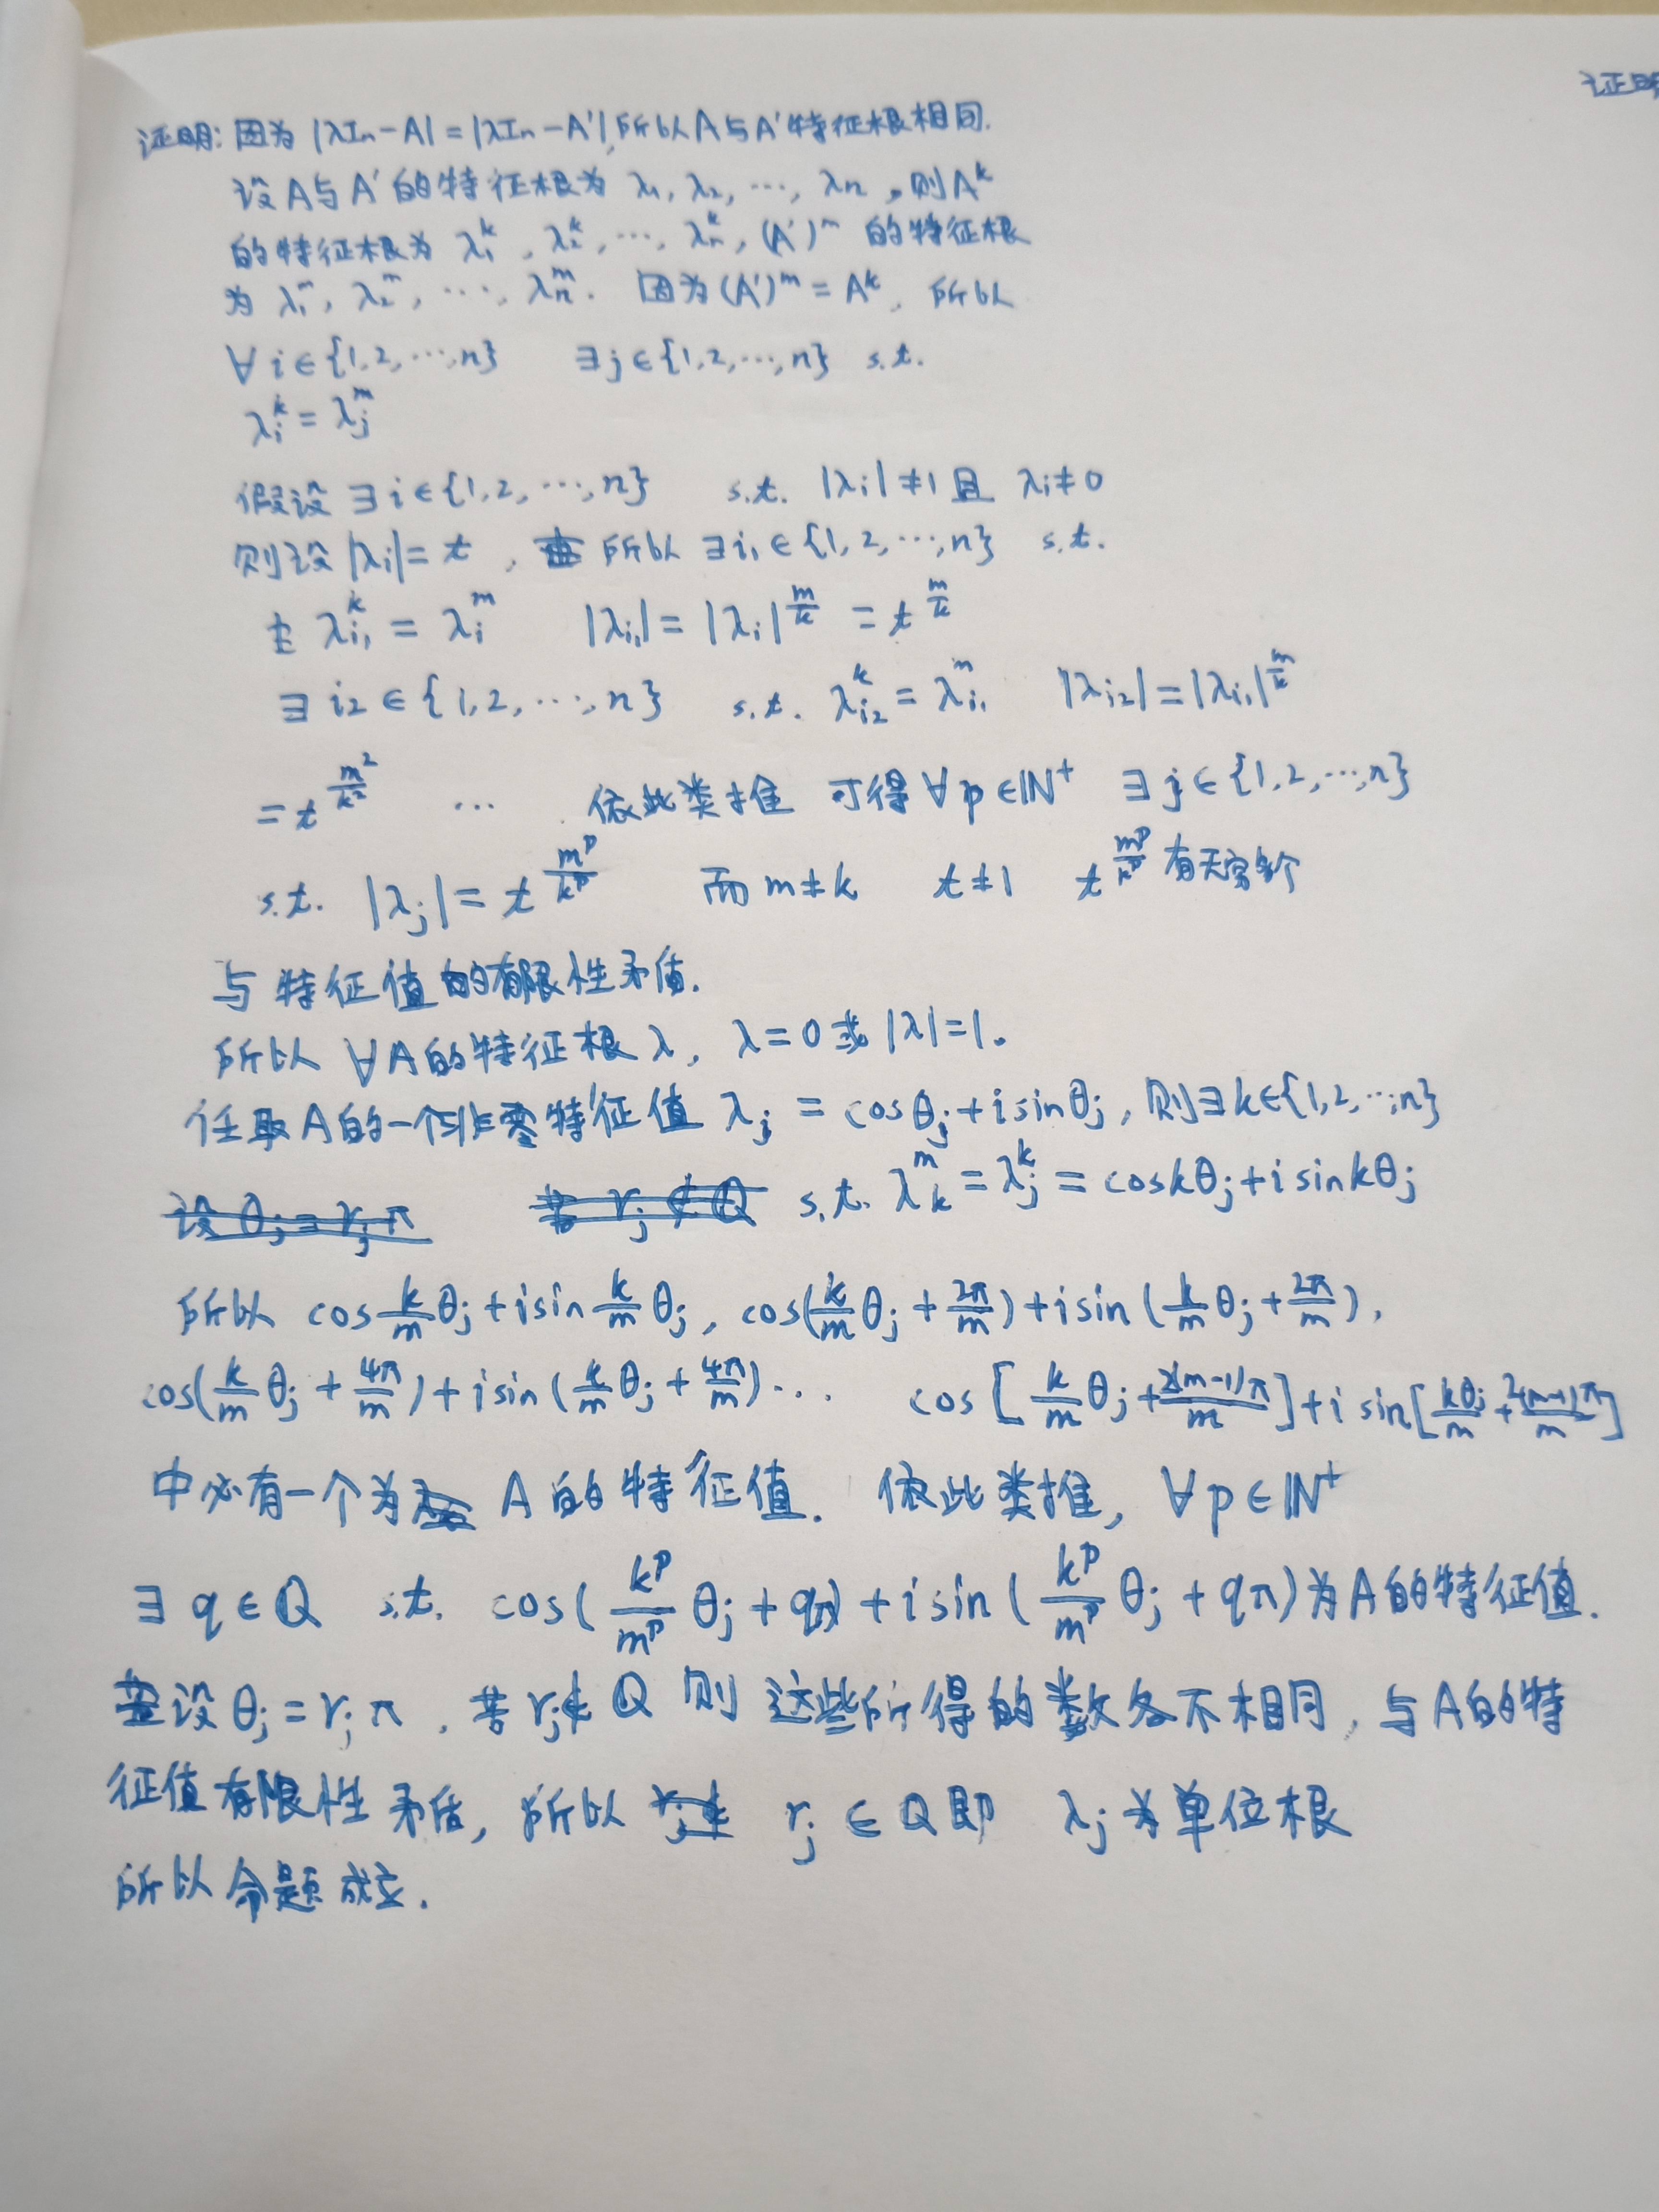 证明
证明: 因为 |λIn-A| = |λIn-A'|, 所以A与A'特征根相同.
设A与A'的特征根为 λ1, λ2, ⋯, λn, 则A^k
的特征根为 λ1^k, λ2^k, ⋯, λn^k, (A')^m 的特征根
为 λ1^m, λ2^m, ⋯, λn^m. 因为(A')^m = A^k, 所以
∀i∈{1,2,⋯,n} ∃j∈{1,2,⋯,n} s.t.
λi^k = λj^m
假设 ∃i∈{1,2,⋯,n} s.t. |λi|≠1且 λi≠0
则设|λi|= t, 所以 ∃i1∈{1,2,⋯,n} s.t.
λi1^k = λi^m |λi1| = |λi|^(m/k) = t^(m/k)
∃i2∈{1,2,⋯,n} s.t. λi2^k = λi1^m |λi2|=|λi1|^(m/k)
= t^(m²/k²) ⋯ 依此类推 可得∀p∈ℕ⁺ ∃j∈{1,2,⋯,n}
s.t. |λj|= t^(m^p/k^p) 而m≠k t≠1 t^(m^p/k^p) 有无穷多个
与特征值的有限性矛盾.
所以 ∀A的特征根λ, λ=0或|λ|=1。
任取A的一个非零特征值 λj = cosθj+isinθj, 则∃k∈{1,2,⋯,n}
s.t. λk^m = λj^k = coskθj+isinkθj
所以 cos(k/m)θj+isin(k/m)θj, cos((k/m)θj+2π/m)+isin((k/m)θj+2π/m),
cos((k/m)θj+4π/m)+isin((k/m)θj+4π/m)⋯ cos[(k/m)θj+2(m-1)π/m]+isin[kθj/m+2(m-1)π/m]
中必有一个为 A的特征值. 依此类推, ∀p∈ℕ⁺
∃q∈ℚ s.t. cos((k^p/m^p)θj+qπ)+isin((k^p/m^p)θj+qπ)为A的特征值.
设θj=rjπ, 若rj∉ℚ 则 这些所得的数各不相同, 与A的特
征值有限性矛盾, 所以 rj∈ℚ即 λj为单位根
所以命题成立.